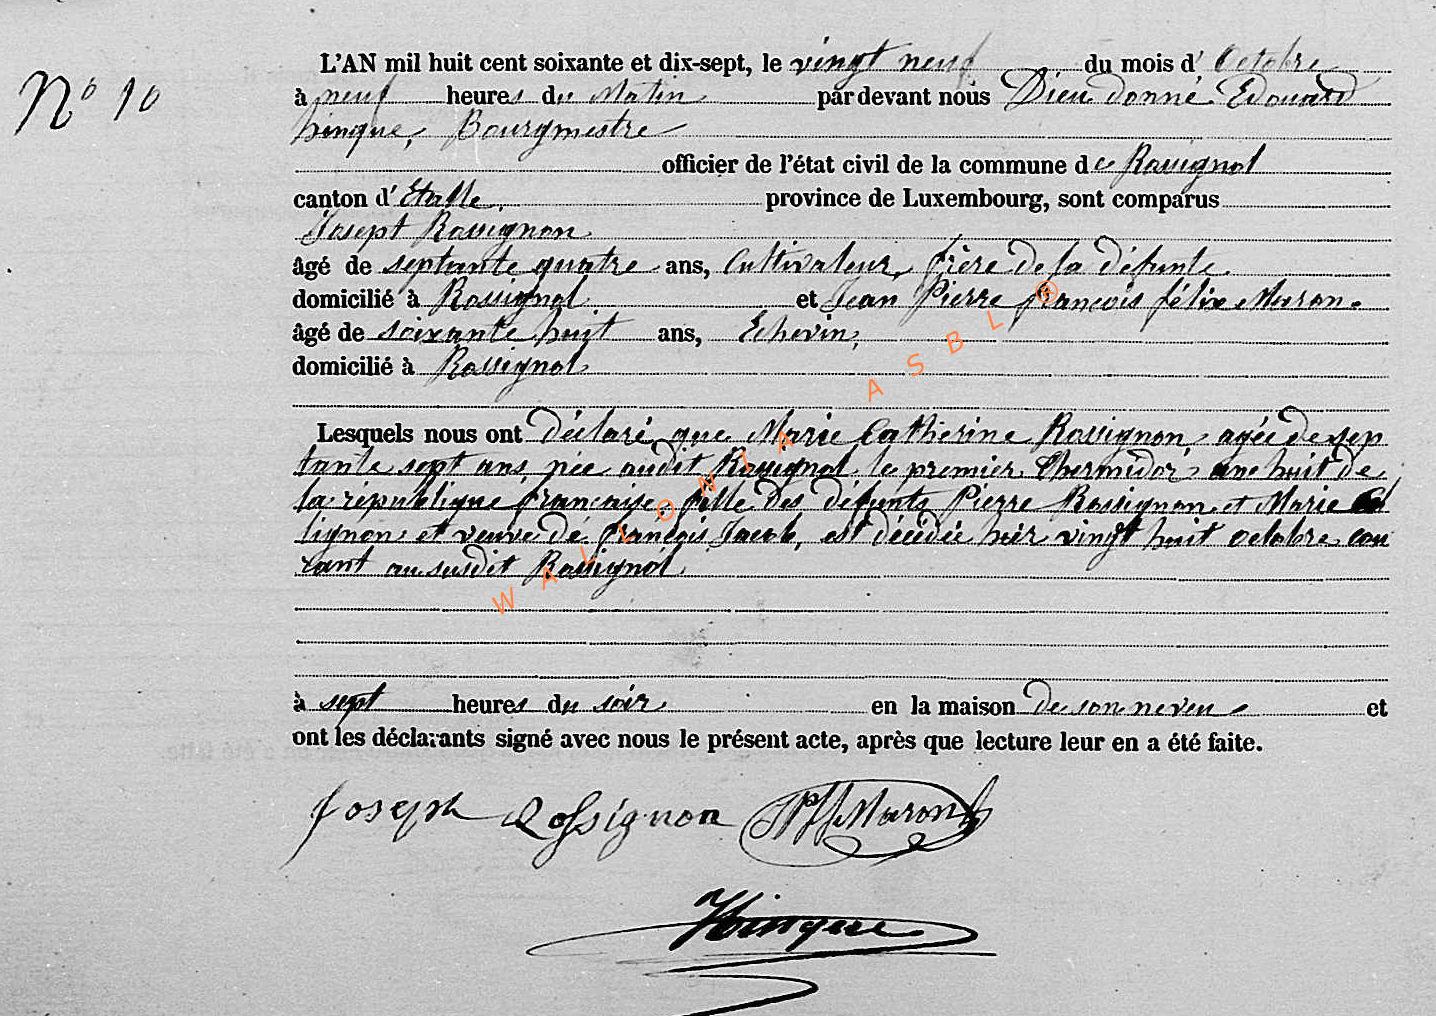 N° 10
L'AN mil huit cent soixante et dix-sept, le vingt neuf du mois d' Octobre
à neuf heures du Matin par devant nous Dieu donné Edouard
hinque, Bourgmestre
officier de l'état civil de la commune de Rossignol
canton d'Etalle, province de Luxembourg, sont comparus
Josept Rossignon
âgé de septante quatre ans, Cultivateur, frère de la défunte
domicilié à Rossignol et Jean Pierre françois félix Maron
âgé de soixante huit ans, Echevin,
domicilié à Rossignol
Lesquels nous ont déclaré que Marie Catherine Rossignon agée de sep
tante sept ans, née audit Rossignol le premier Thermidor an huit de
la république française fille des défunts Pierre Rossignon et Marie
lignon et veuve de françois Jacob, est décédée hier vingt huit octobre cou
rant au susdit Rossignol
à sept heures du soir en la maison de son neveu et
ont les déclarants signé avec nous le présent acte, après que lecture leur en a été faite.
Joseph Rossignon JPffMaron
Hinque
WALLONIA ASBL ®